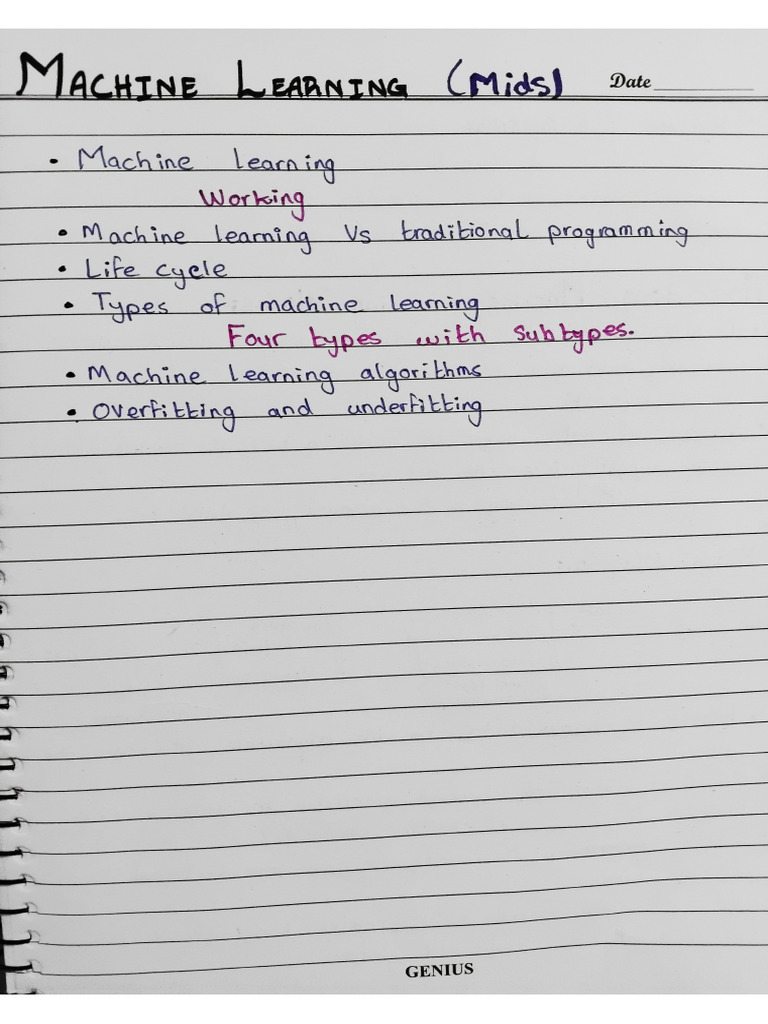 MACHINE LEARNING (Mids) Date
• Machine learning
Working
• Machine learning Vs traditional programming
• Life cycle
• Types of machine learning
Four types with subtypes.
• Machine learning algorithms
• Overfitting and underfitting
GENIUS